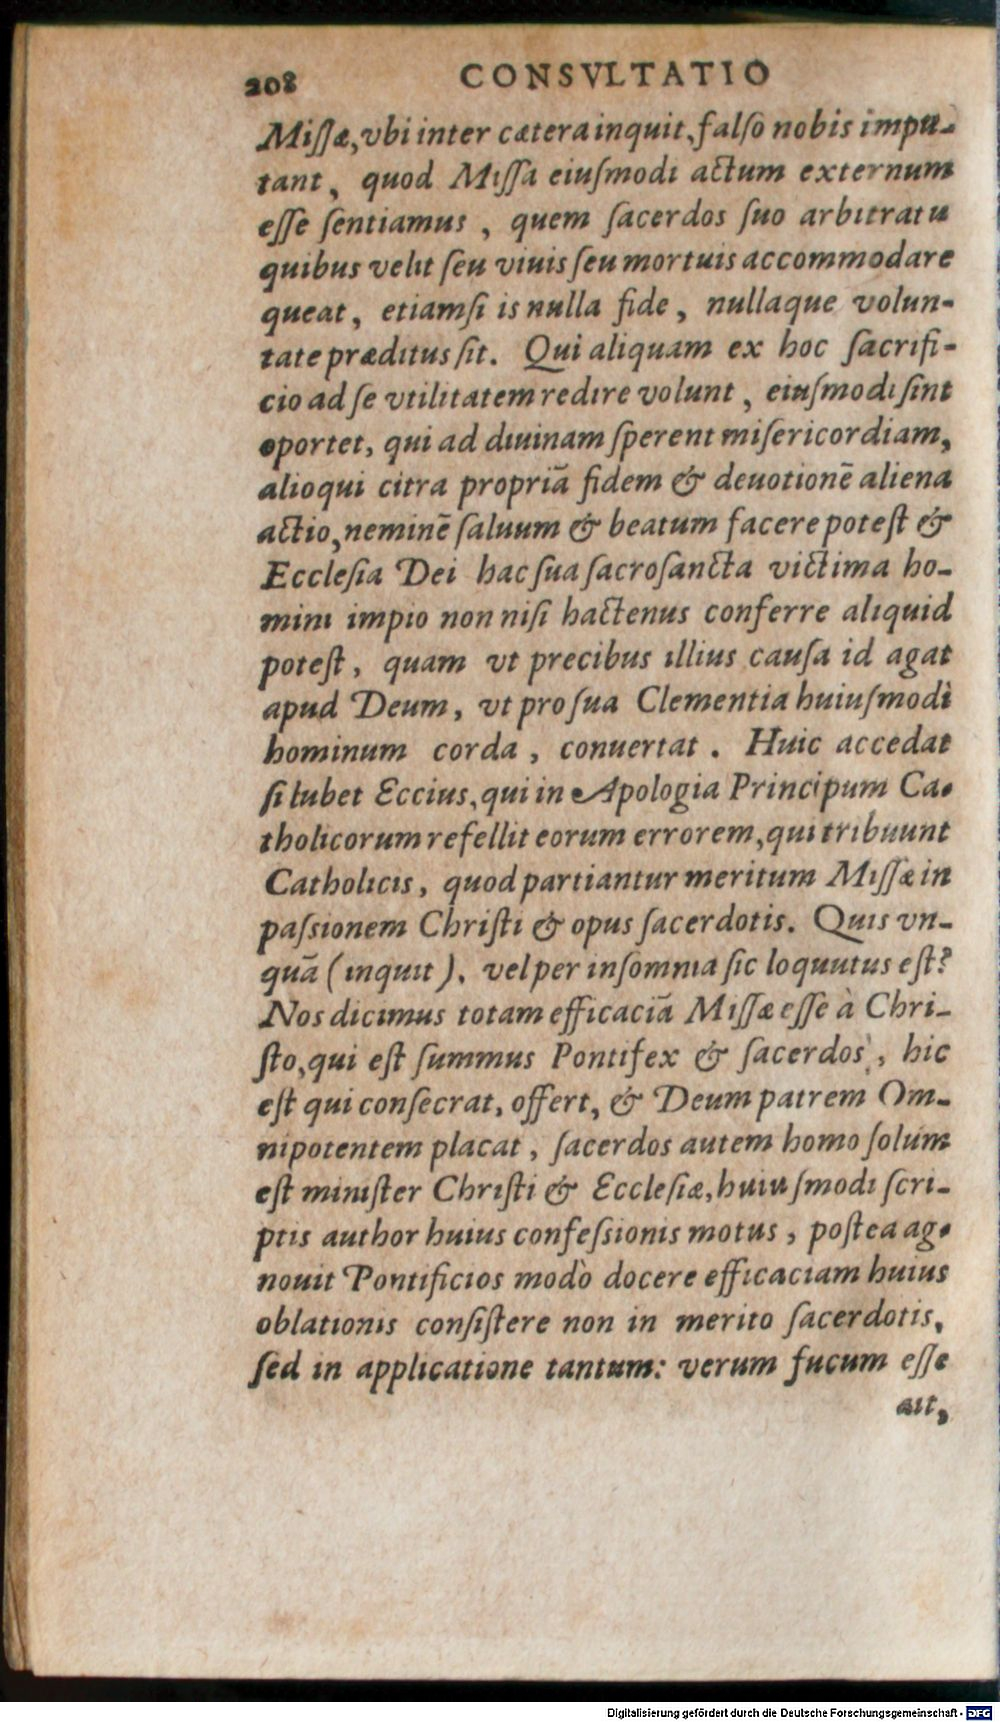 208 CONSVLTATIO
Miſſæ, vbi inter cætera inquit, falſo nobis impu-
tant, quod Miſſa eiuſmodi actum externum
eſſe ſentiamus, quem ſacerdos ſuo arbitratu
quibus velit ſeu viuis ſeu mortuis accommodare
queat, etiamſi is nulla fide, nullaque volun-
tate præditus ſit. Qui aliquam ex hoc ſacrifi-
cio ad ſe vtilitatem redire volunt, eiuſmodi ſint
oportet, qui ad diuinam ſperent miſericordiam,
alioqui citra propriā fidem & deuotionē aliena
actio, neminē ſaluum & beatum facere poteſt &
Eccleſia Dei hac ſua ſacroſancta victima ho-
mini impio non niſi hactenus conferre aliquid
poteſt, quam vt precibus illius cauſa id agat
apud Deum, vt pro ſua Clementia huiuſmodi
hominum corda, conuertat. Huic accedat
ſi lubet Eccius, qui in Apologia Principum Ca-
tholicorum refellit eorum errorem, qui tribuunt
Catholicis, quod partiantur meritum Miſſæ in
paſsionem Chriſti & opus ſacerdotis. Quis vn-
quā (inquit), vel per inſomnia ſic loquutus eſt?
Nos dicimus totam efficaciā Miſſæ eſſe à Chri-
ſto, qui eſt ſummus Pontifex & ſacerdos, hic
eſt qui conſecrat, offert, & Deum patrem Om-
nipotentem placat, ſacerdos autem homo ſolum
eſt miniſter Chriſti & Eccleſiæ, huiuſmodi ſcri-
ptis author huius confeſsionis motus, poſtea ag-
nouit Pontificios modò docere efficaciam huius
oblationis conſiſtere non in merito ſacerdotis,
ſed in applicatione tantum: verum fucum eſſe
ait,
Digitalisierung gefördert durch die Deutsche Forschungsgemeinschaft - DFG